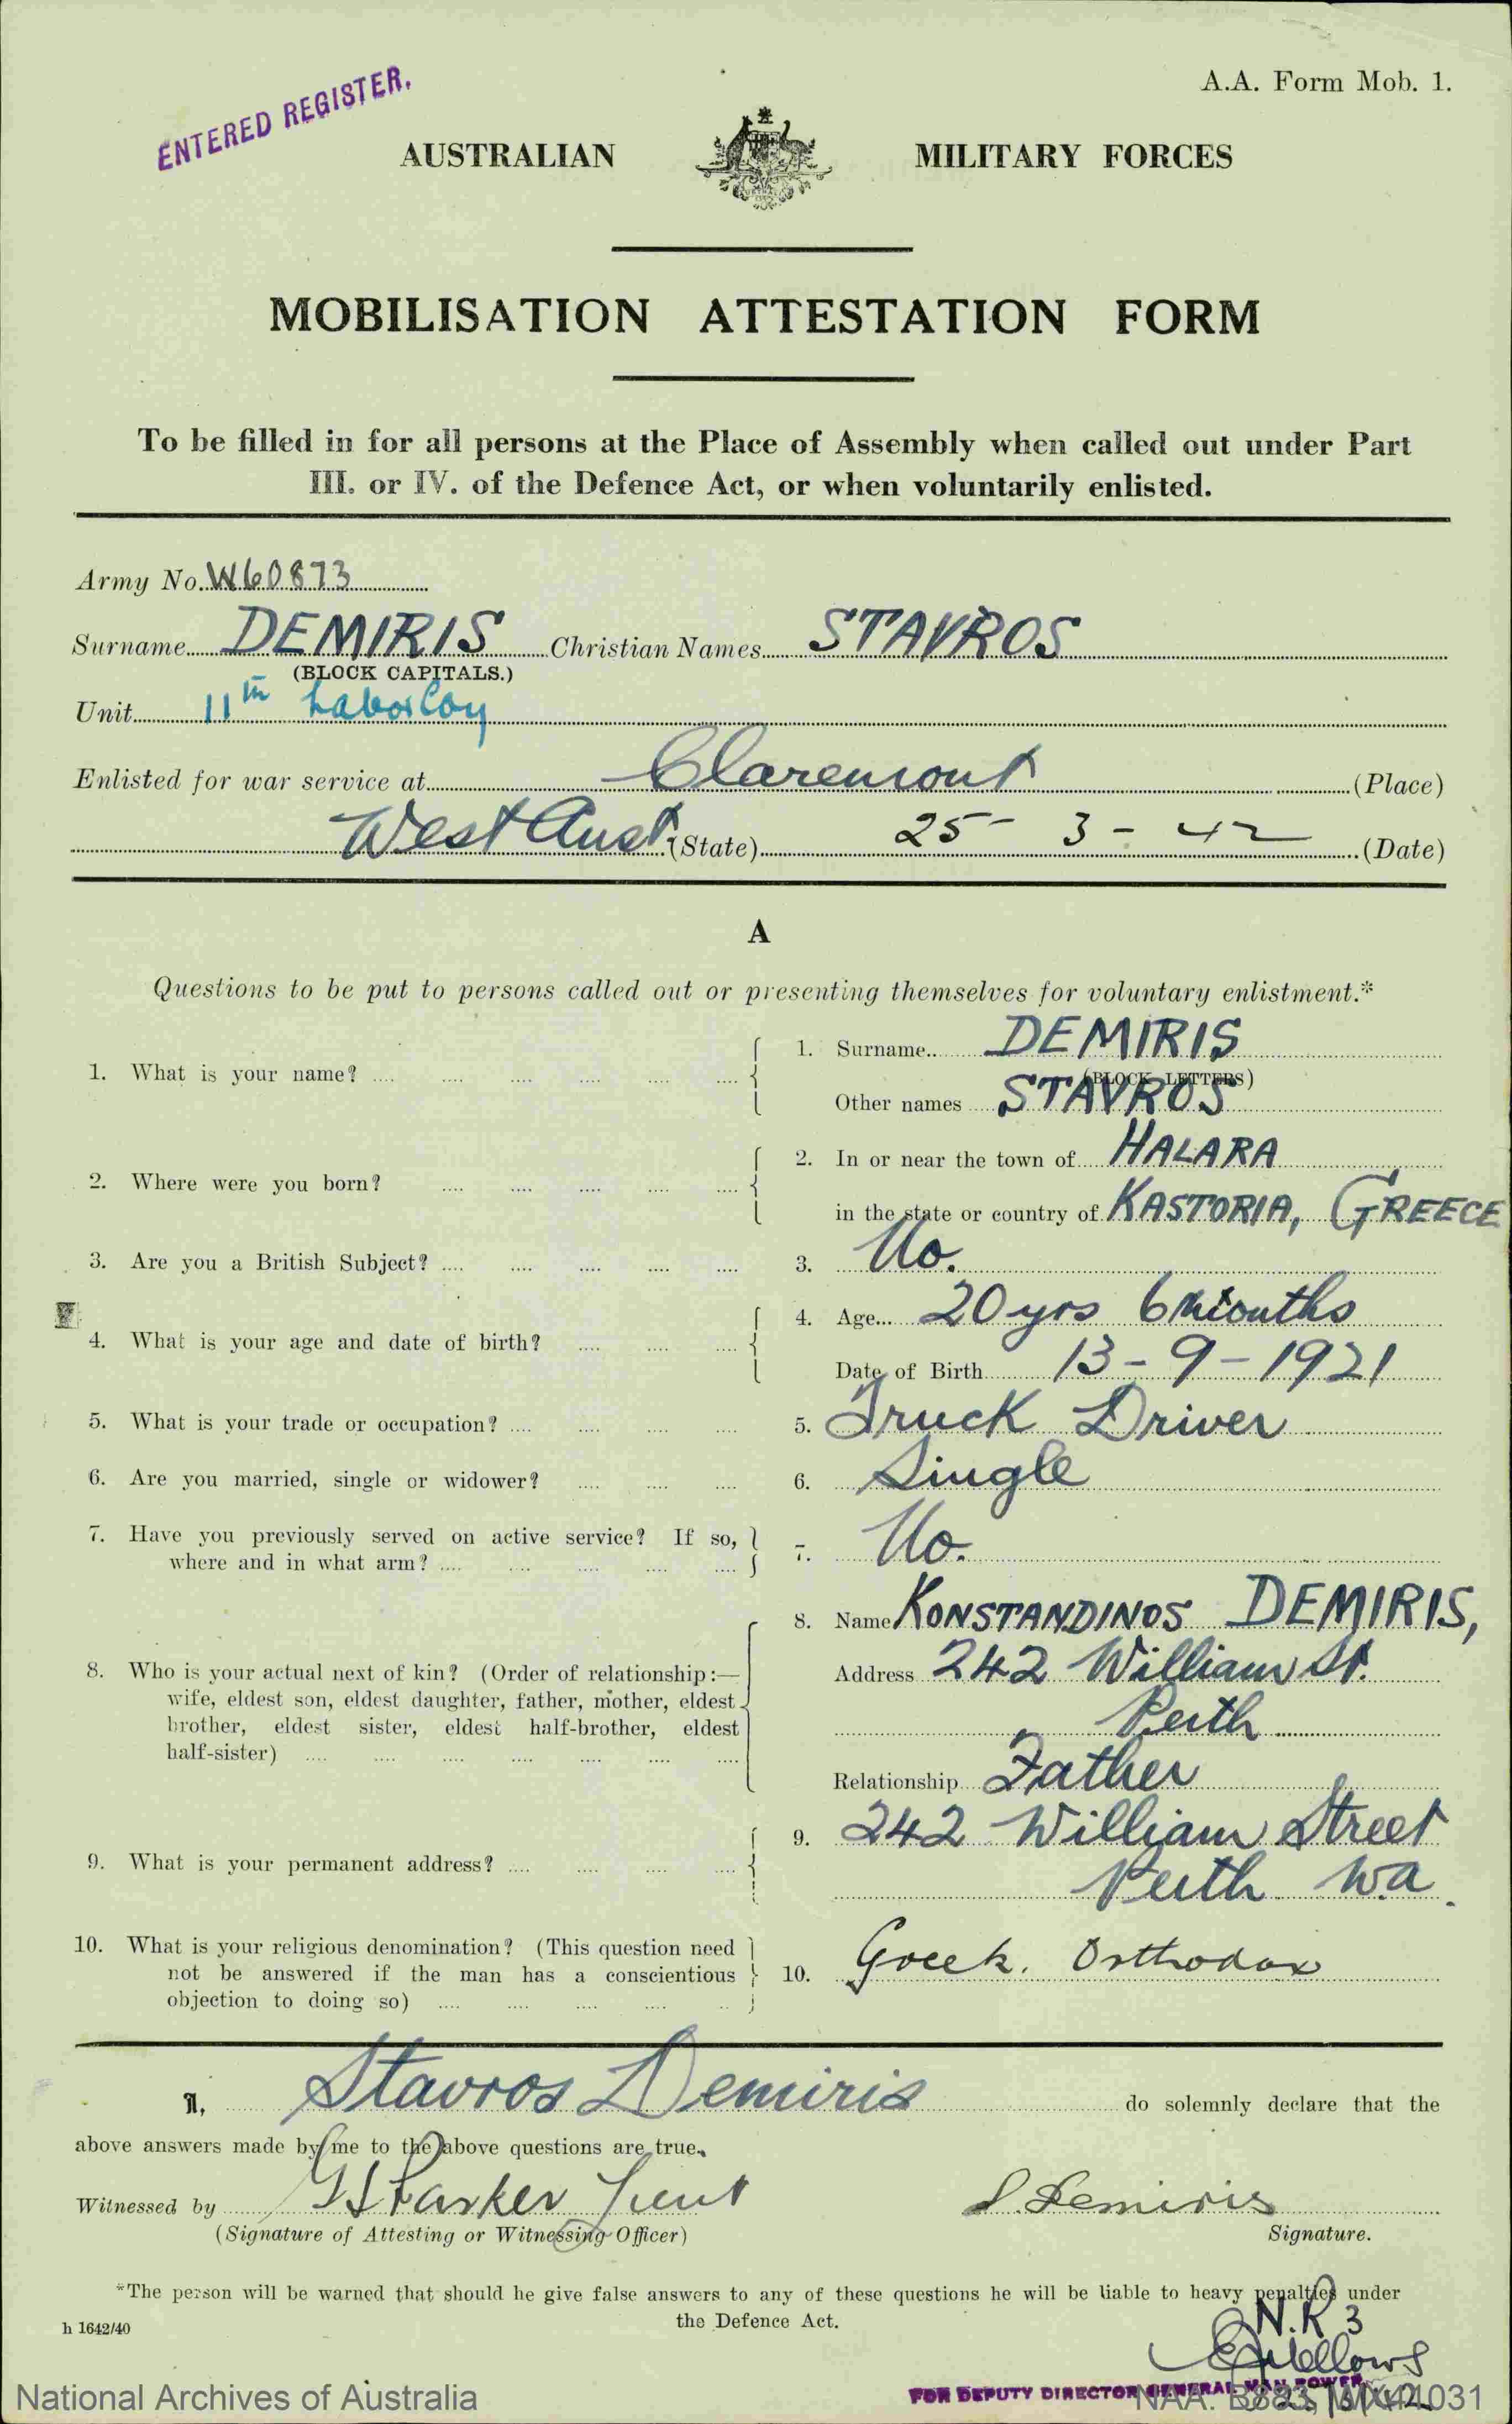 A.A. Form Mob. 1.
ENTERED REGISTER.
AUSTRALIAN MILITARY FORCES
MOBILISATION ATTESTATION FORM
To be filled in for all persons at the Place of Assembly when called out under Part
III. or IV. of the Defence Act, or when voluntarily enlisted.
Army No. W60873
Surname DEMIRIS Christian Names STAVROS
(BLOCK CAPITALS.)
Unit 11th Labor Coy
Enlisted for war service at Claremont (Place)
West Aust. (State) 25 - 3 - 42 (Date)
A
Questions to be put to persons called out or presenting themselves for voluntary enlistment.*
1. What is your name? 1. Surname DEMIRIS
(BLOCK LETTERS)
Other names STAVROS
2. Where were you born? 2. In or near the town of HALARA
in the state or country of KASTORIA, GREECE
3. Are you a British Subject? 3. No.
4. What is your age and date of birth? 4. Age 20 yrs 6 months
Date of Birth 13 - 9 - 1921
5. What is your trade or occupation? 5. Truck Driver
6. Are you married, single or widower? 6. Single
7. Have you previously served on active service? If so,
where and in what arm? 7. No.
8. Who is your actual next of kin? (Order of relationship:—
wife, eldest son, eldest daughter, father, mother, eldest
brother, eldest sister, eldest half-brother, eldest
half-sister)
8. Name KONSTANDINOS DEMIRIS,
Address 242 William St.
Perth
Relationship Father
9. What is your permanent address? 9. 242 William Street
Perth W.A.
10. What is your religious denomination? (This question need
not be answered if the man has a conscientious
objection to doing so) 10. Greek. Orthodox
I, Stavros Demiris do solemnly declare that the
above answers made by me to the above questions are true.
Witnessed by Parker Lieut S. Demiris
(Signature of Attesting or Witnessing Officer) Signature.
*The person will be warned that should he give false answers to any of these questions he will be liable to heavy penalties under
the Defence Act.
h 1642/40
N.R 3
FOR DEPUTY DIRECTOR GENERAL MAN POWER
National Archives of Australia NAA: B883, WX41031